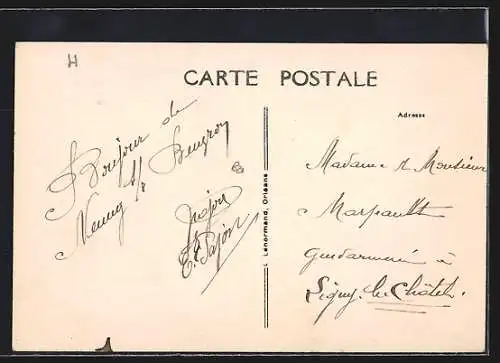 H
CARTE POSTALE
Adresse
Bonjour de
Neung s/ Beuvron
E. Pajon
L. Lenormand, Orléans
Madame & Monsieur
Marpault
Gendarmerie à
Ligny-le-Châtel.